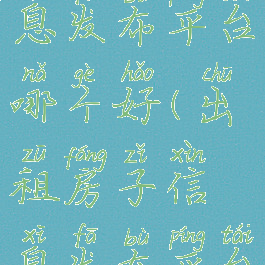 息发布平台
nǎ gè hǎo chū
哪个好(出
zū fáng zǐ xìn
租房子信
xī fā bù píng tái
息发布平台